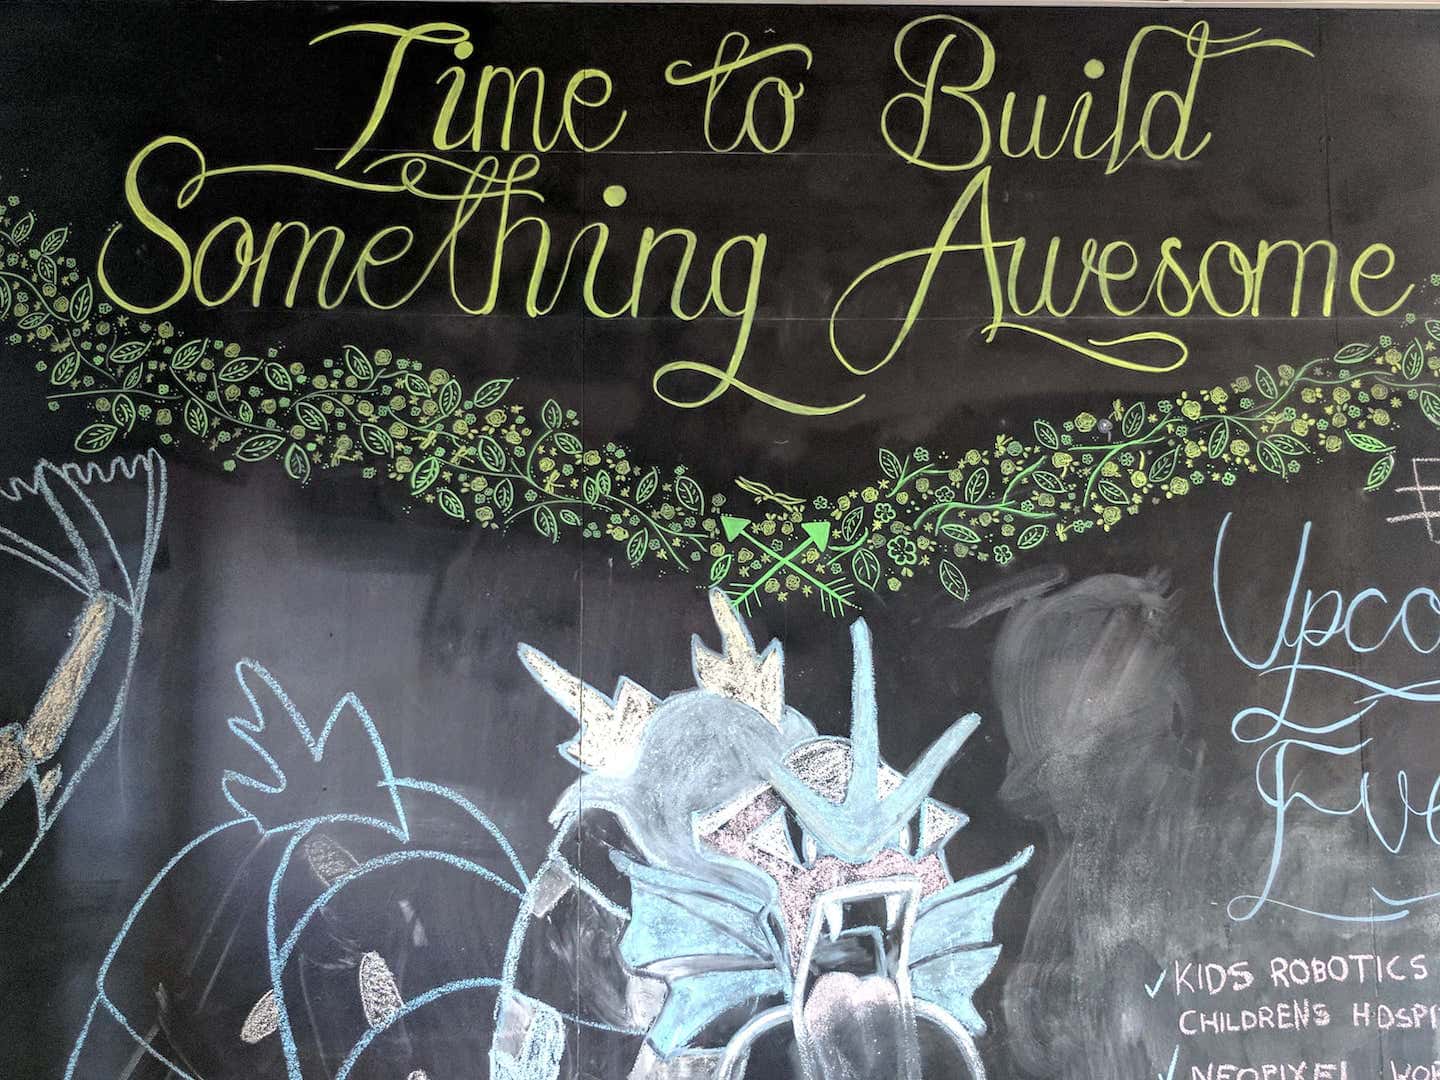 Time to Build
Something Awesome
KIDS ROBOTICS
CHILDRENS
NEOPIXEL